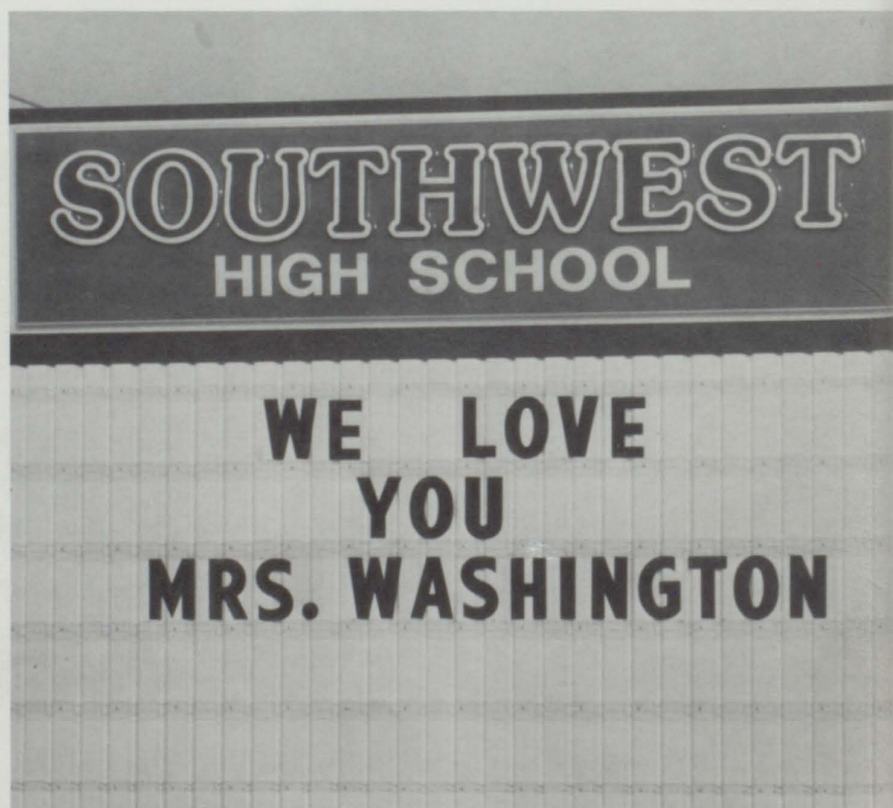 SOUTHWEST
HIGH SCHOOL
WE LOVE
YOU
MRS. WASHINGTON